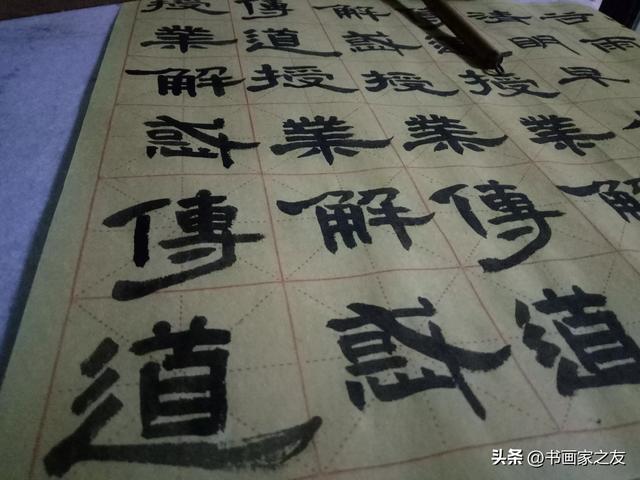 雨
明早
授業解
解惑授業傳道
傳道授業解惑
授業解惑傳道
书画家之友
头条 @书画家之友